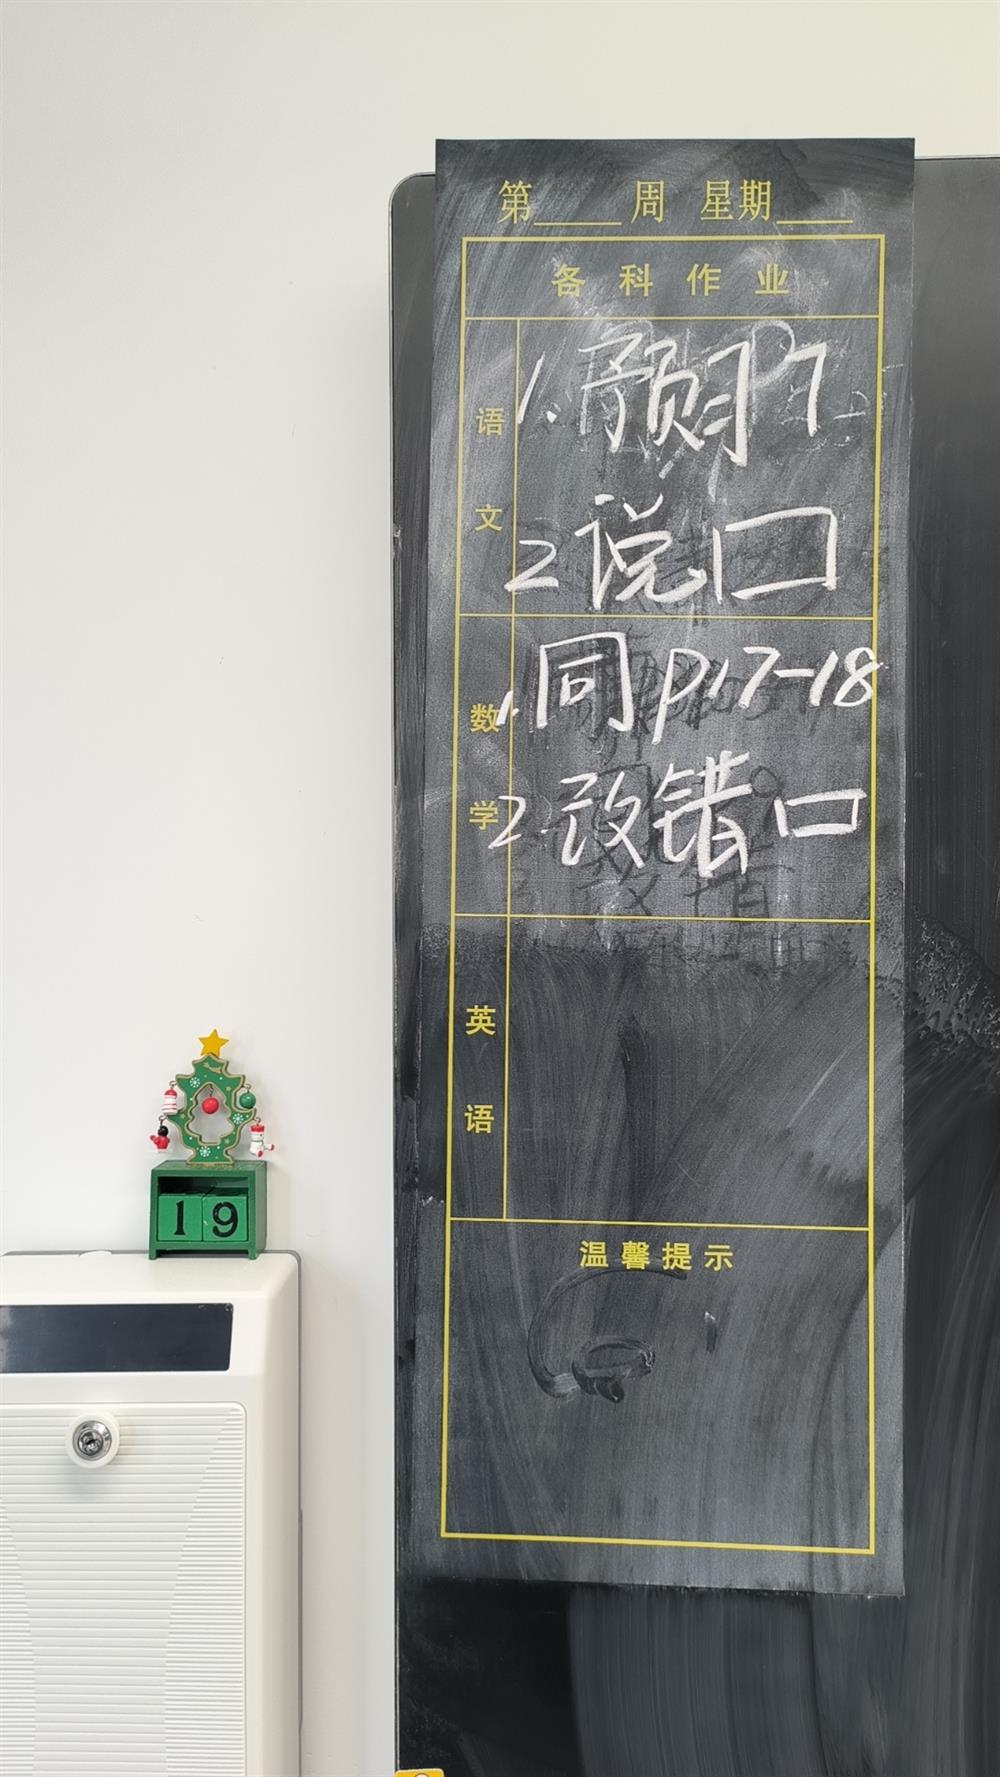 第____周 星期____
各科作业
语文
1.预习7
2 说口
数学
1.同P17-18
2.改错口
英语
温馨提示
19